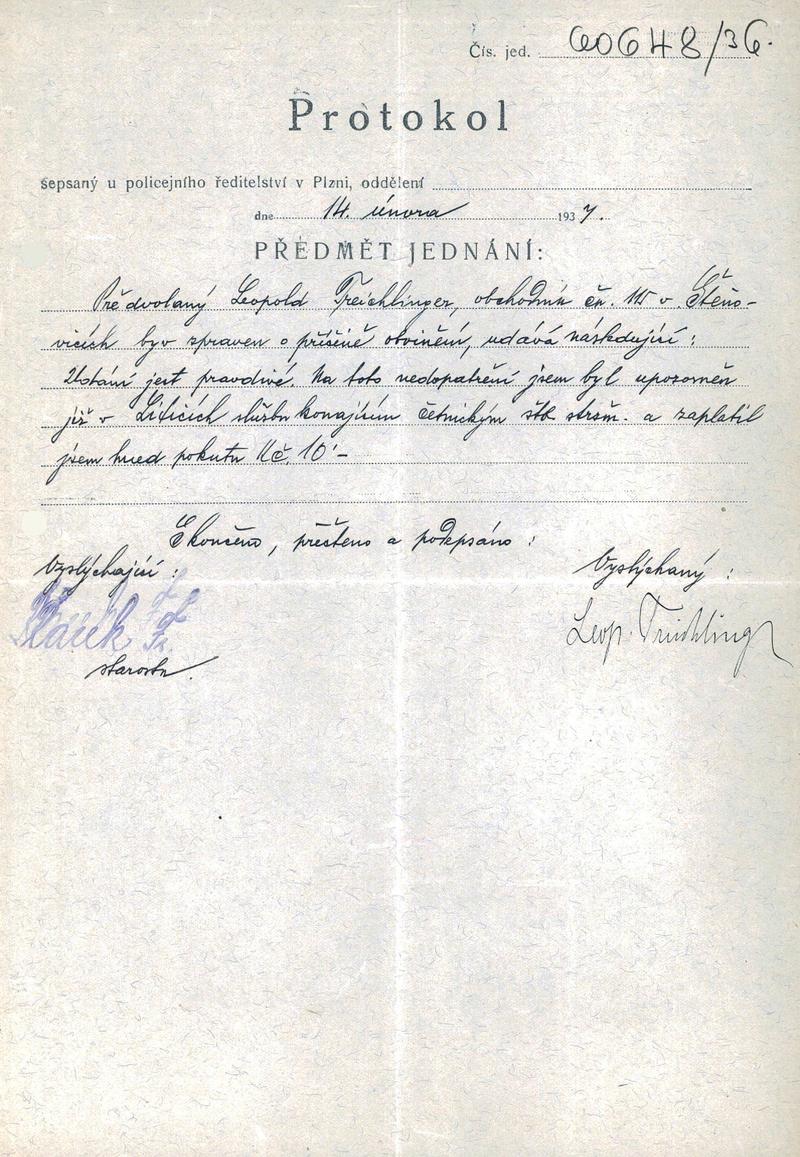 Čís. jed. 60648/36.
Protokol
sepsaný u policejního ředitelství v Plzni, oddělení
dne 14. února 1937.
PŘEDMĚT JEDNÁNÍ:
Předvolaný Leopold Treichlinger, obchodník čp. 115 v Štěno-
vicích byv zpraven o příčině obvinění, udává následující:
Udání jest pravdivé. Na toto nedopatření jsem byl upozorněn
již v Liticích službu konajícím četnickým štb. stržm. a zaplatil
jsem hned pokutu Kč. 10'-
Skončeno, přečteno a podepsáno:
Vyslýchající: Vyslýchaný:
Fr. Leop. Treichlinger
starosta.